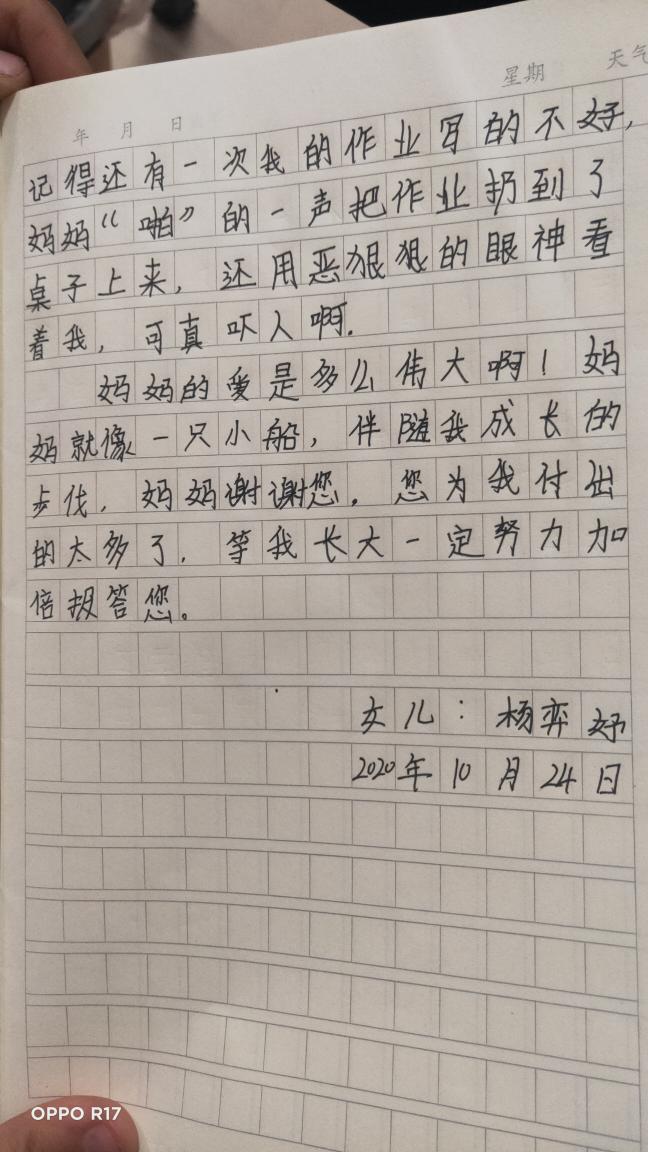 星期 天气
年 月 日
记得还有一次我的作业写的不好,
妈妈“啪”的一声把作业扔到了
桌子上来,还用恶狠狠的眼神看
着我,可真吓人啊.
妈妈的爱是多么伟大啊!妈
妈就像一只小船,伴随我成长的
步伐,妈妈谢谢您.您为我付出
的太多了.等我长大一定努力加
倍报答您。
女儿:杨弈妤
2020年10月24日
OPPO R17